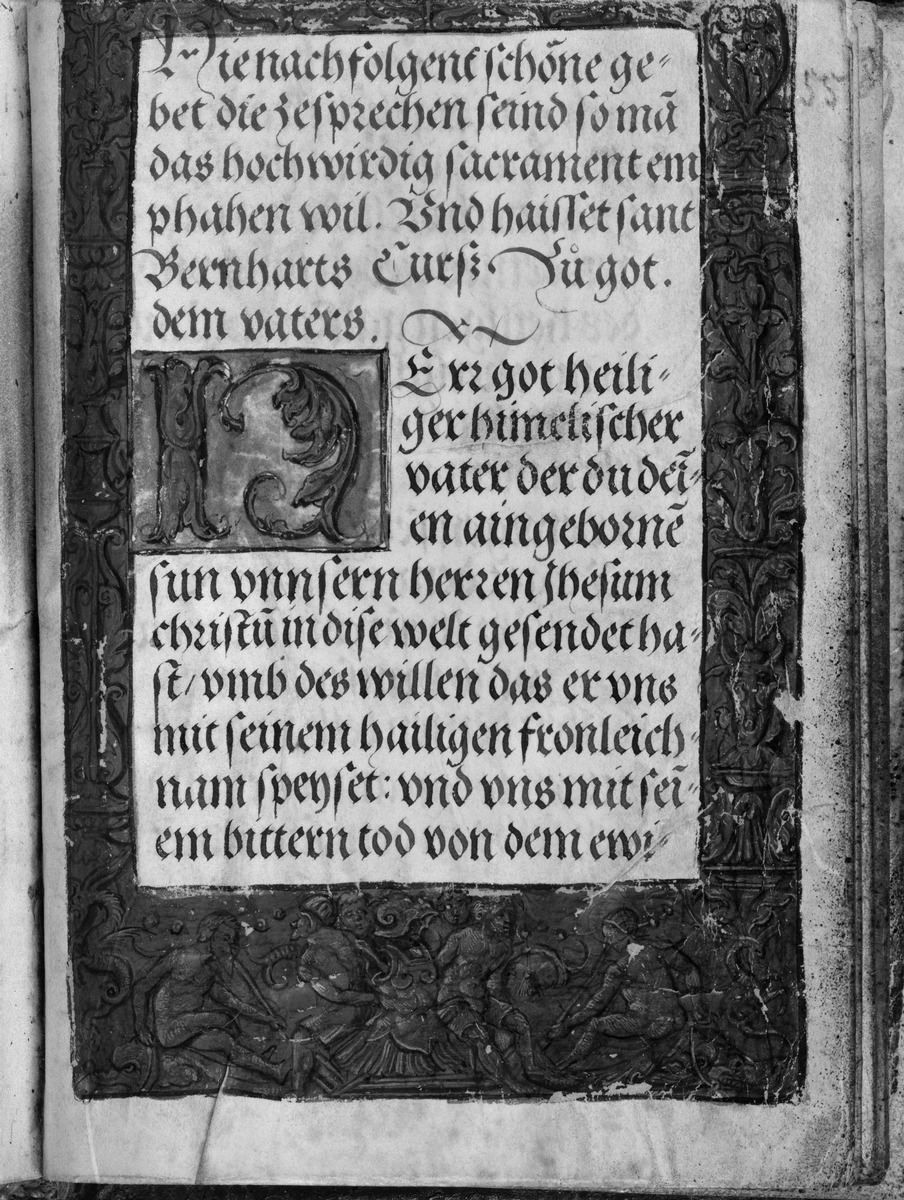 Hie nach folgent schöne ge-
bet die zesprechen seind so mā
das hochwirdig sacrament em
phahen wil. Vnd haisset sant
Bernharts Curß. Zů got.
dem vaters.
HErr got heili-
ger hūmelischer
vater der du deī-
en aingebornē
sun vnnsern herren Jhesum
christū in dise welt gesendet ha-
st/ vmb des willen das er vns
mit seinem hailigen fronleich-
nam speyset: vnd vns mit seī-
em bittern tod von dem ewi-
55